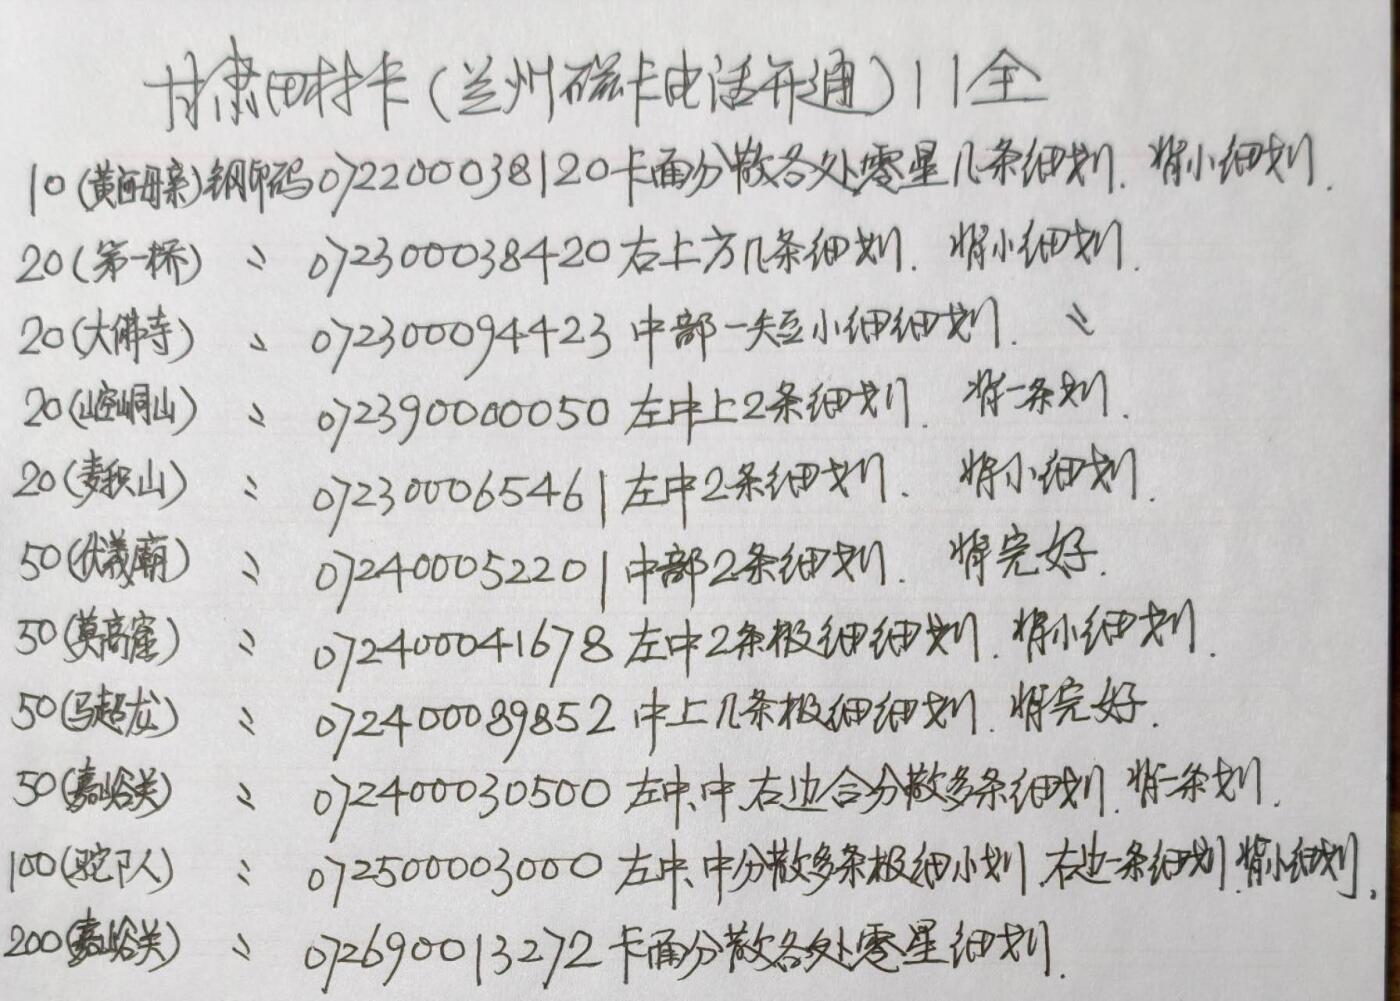 甘肃田村卡(兰州磁卡电话开通)11全
10(黄河母亲)钢印码072200038120卡面分散各处零星几条细划.背小细划.
20(第一桥) 〃 072300038420右上方几条细划.背小细划.
20(大佛寺) 〃 072300094423中部一短小细细划. 〃
20(崆峒山) 〃 072390000050左中上2条细划.背一条划.
20(麦积山) 〃 072300065461左中2条细划.背小细划.
50(伏羲廟) 〃 072400052201中部2条细划.背完好.
50(莫高窟) 〃 072400041678左中2条极细细划.背小细划.
50(马超龙) 〃 072400089852中上几条极细细划.背完好.
50(嘉峪关) 〃 072400030500左中、中、右边合分散多条细划.背一条划.
100(驼卩人) 〃 072500003000左中、中分散多条极细小划.右边一条细划.背小细划.
200(嘉峪关) 〃 072690013272卡面分散各处零星细划.